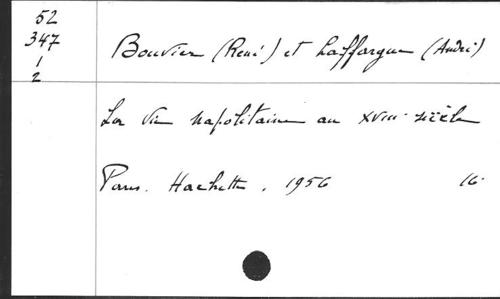 52
347
1
2
Bouvier (René) et Laffargue (André)
La Vie napolitaine au XVIII. siècle
Paris. Hachette, 1956 16.